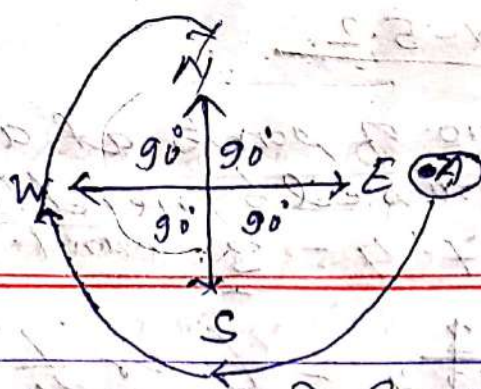 N
90° 90°
W E A
90° 90°
S